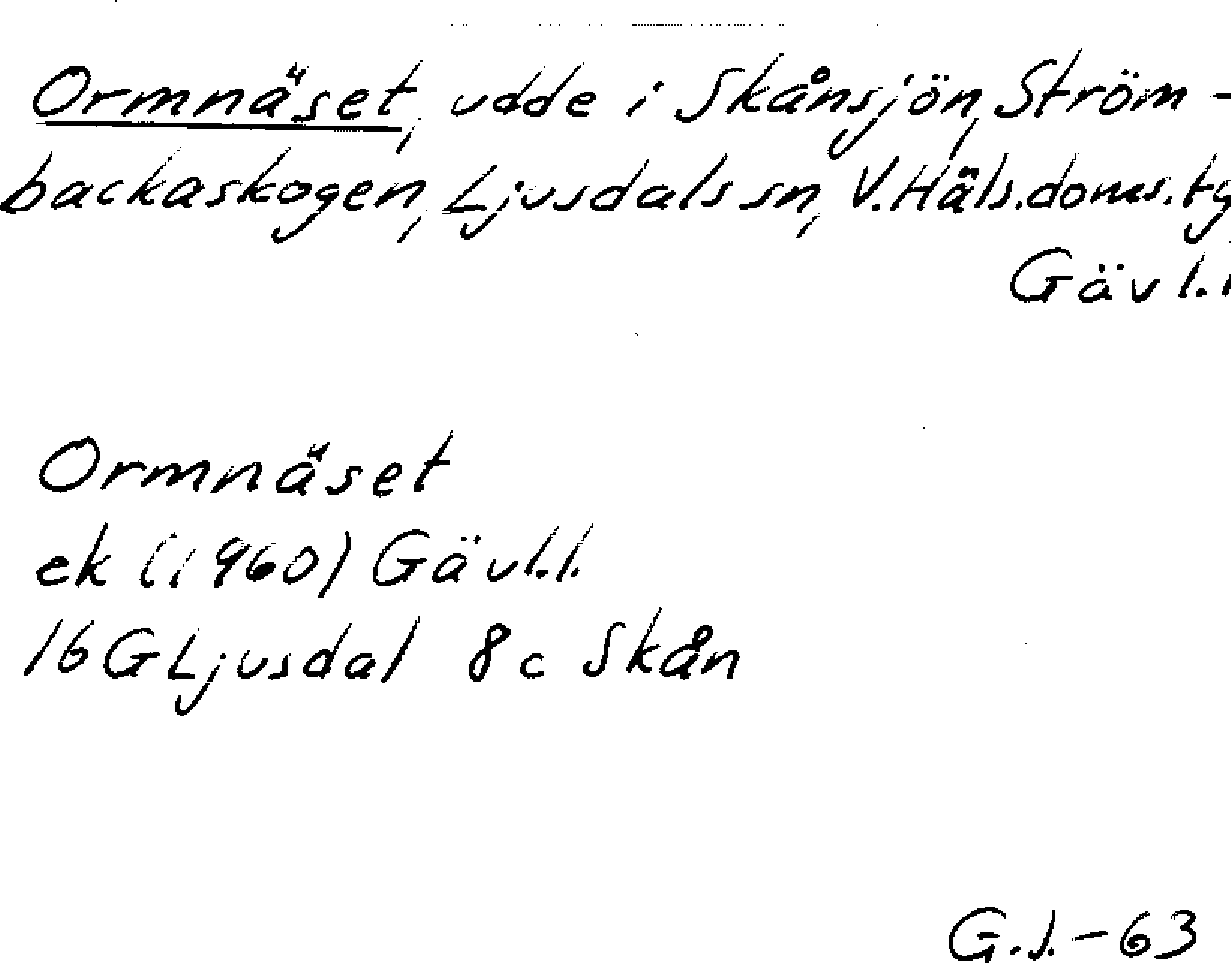 Ormnäset, udde i Skånsjön, Ström-
backaskogen, Ljusdals sn, V.Häls.doms.tg
Gävl.l
Ormnäset
ek (1960) Gävl.l.
16G Ljusdal 8c Skån
G.J.-63